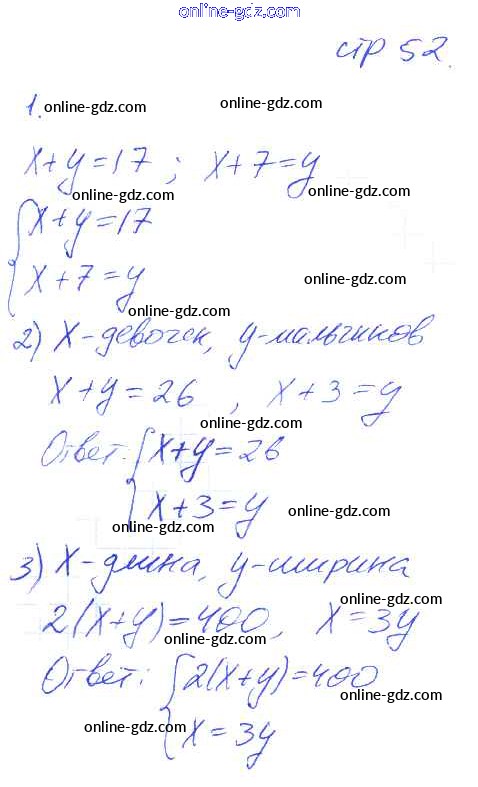 online-gdz.com
стр 52.
1. online-gdz.com online-gdz.com
x+y=17 ; x+7=y
online-gdz.com online-gdz.com
{x+y=17
x+7=y online-gdz.com
online-gdz.com
2) x-девочек, y-мальчиков
x+y=26 , x+3=y
online-gdz.com
Ответ: {x+y=26
x+3=y online-gdz.com
online-gdz.com
3) x-длина, y-ширина
online-gdz.com
2(x+y)=400, x=3y
online-gdz.com
Ответ: {2(x+y)=400
online-gdz.com
online-gdz.com x=3y